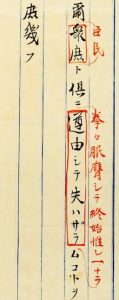 臣民
拳々服膺シテ終始惟レ一ナラ
爾衆庶ト倶ニ遵由シテ失ハザラムコトヲ
庶幾フ